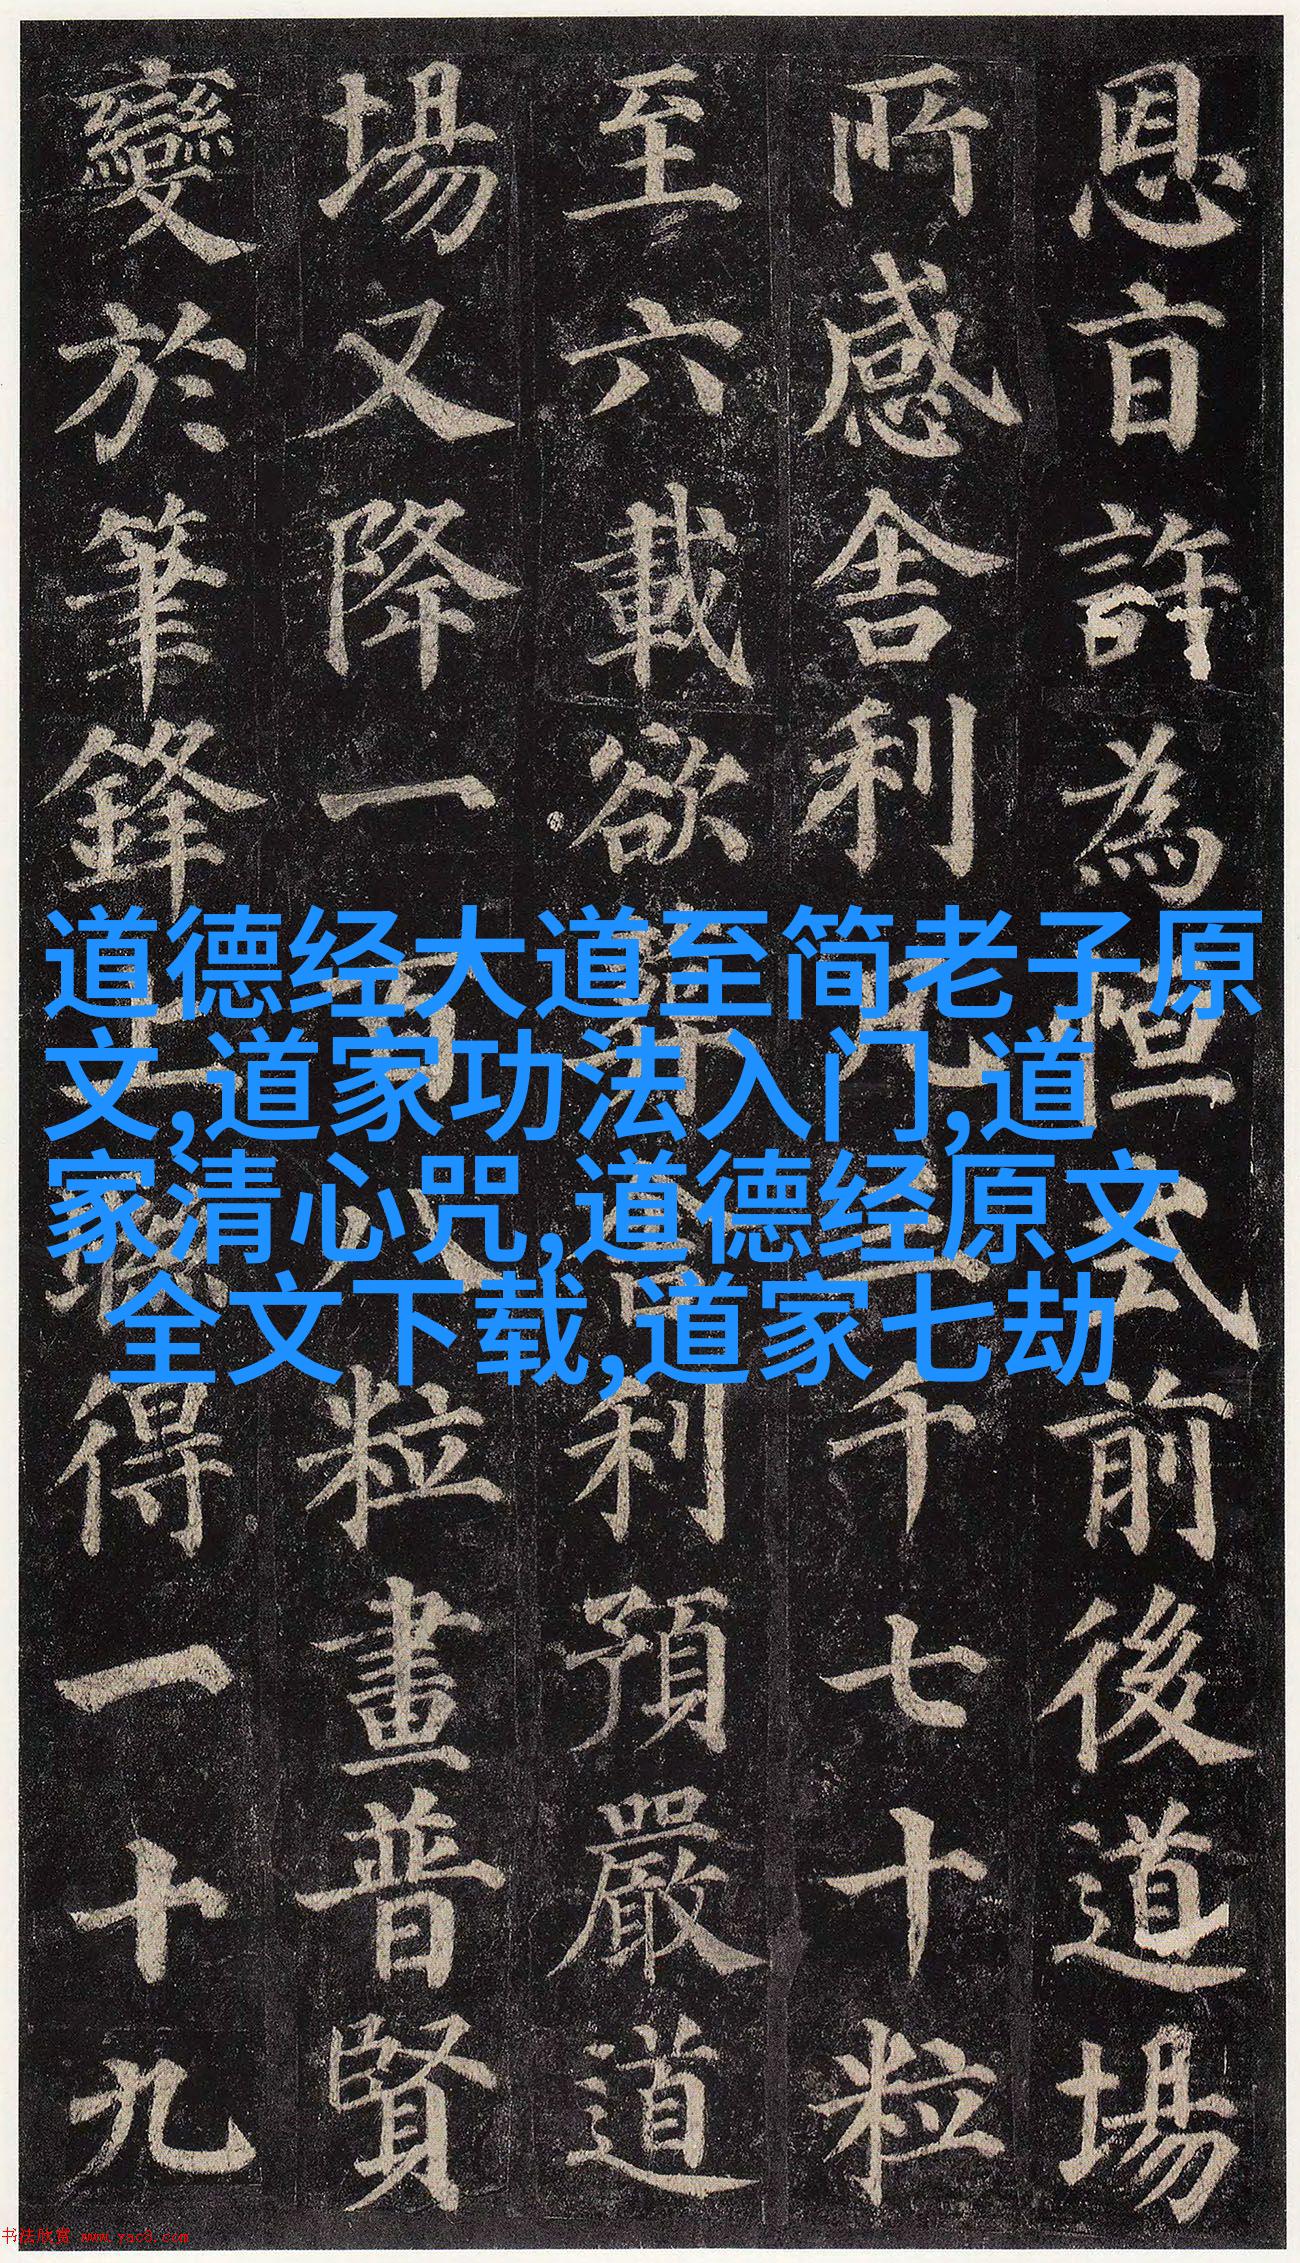 恩旨許為恒式前後道場
所感舍利凡三千七十粒
至六載欲葬舍利預嚴道
場又降一百八粒畫普賢
變於筆鋒上聯得一十九
道德经大道至简老子原
文,道家功法入门,道
家清心咒,道德经原文
全文下载,道家七劫
书法欣赏 www.yac8.com